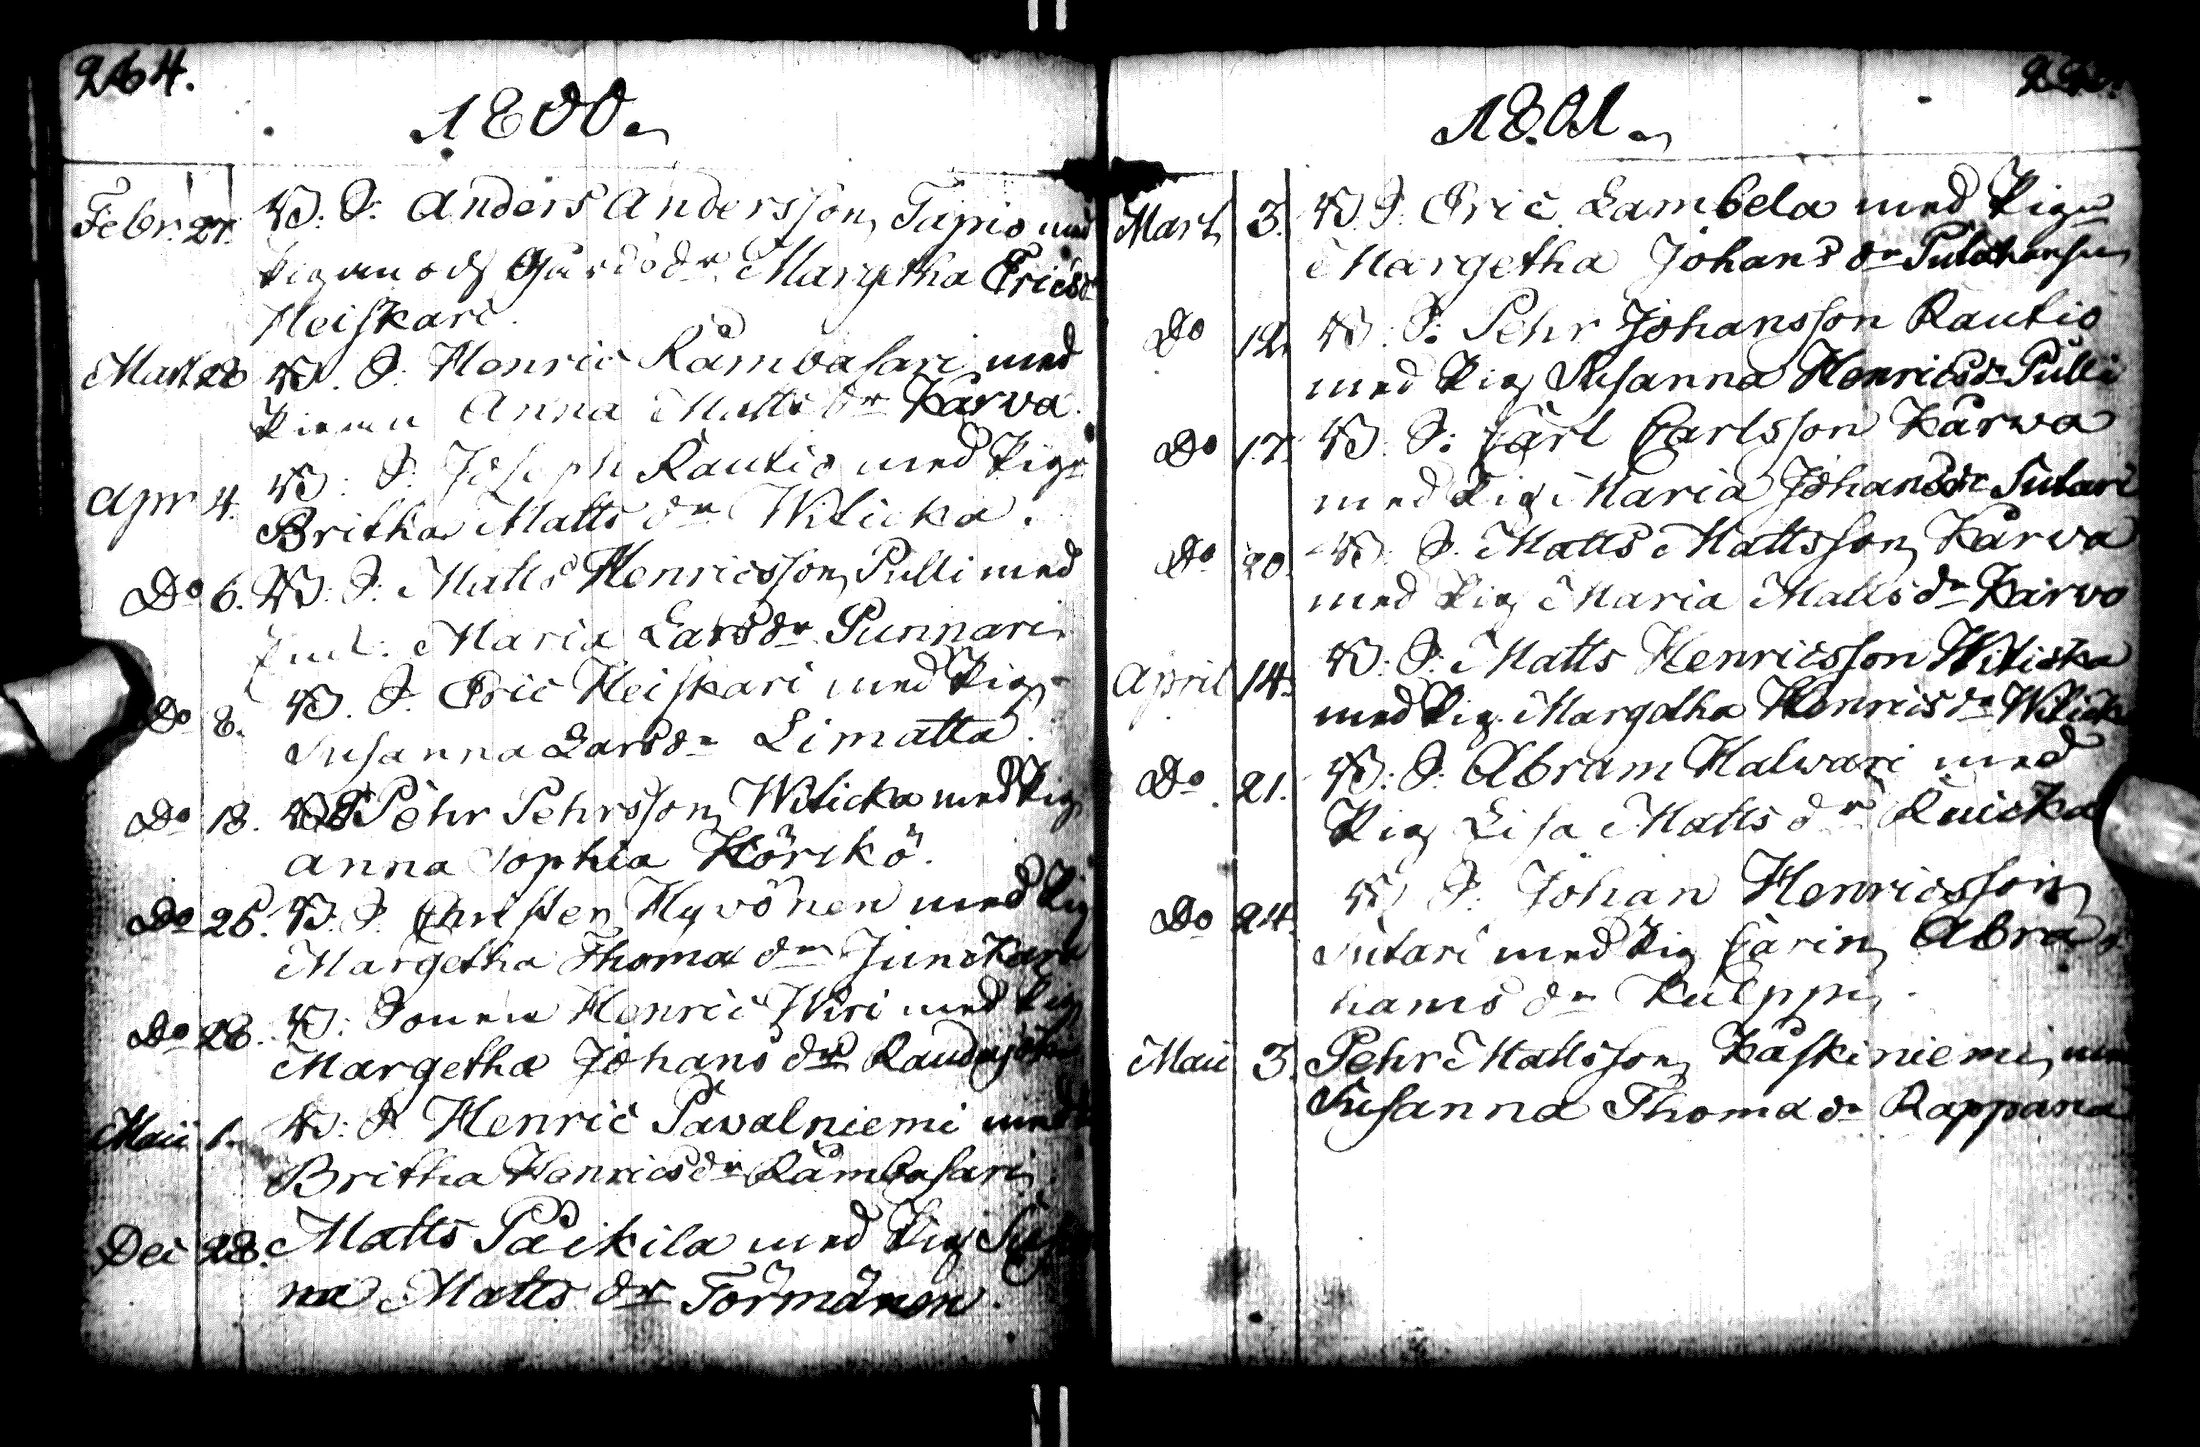 264.
1800.
Febr. 27. W. S. Anders Andersson Tapio med
Pigan och Gårds dr. Margetha Erics dr
Heiskari.
Mart 28 W. S. Henric Rämbasari med
Pigan Anna Matts dr Karva.
Apr 4. W. S. Joseph Rautio med Pig.
Britha Matts dr Witicka.
Do 6. W. S. Matts Henricsson Pulli med
Maria Lars dr Punnari
Do 8. W. S. Eric Heiskari med Pig.
Susanna Lars dr Limatta.
Do 18. W. S. Pehr Pehrsson Witicka med Pig
Anna Sophia Körckö.
Do 26. W. S. Christen Hyvönen med Pig
Margetha Thomæ dr Junckari
Do 28. W. Henric Wiri med Pig
Margetha Johans dr
Maii 1. W. S. Henric Pawalniemi med
Britha Henrics dr Rämbasari
Dec 28. Matts Päikilä med Pig Susan
na Matts dr Törmänen.
1801.
Mart 3. W. S. Eric Lambela med Pig
Margetha Johans dr
Do 12. W. S. Pehr Johansson Rautio
med Pig Susanna Henrics dr Pulli
Do 17. W. S. Carl Carlsson Karwa
med Pig Maria Johans dr Sutari
Do 20. W. S. Matts Mattsson Karwa
med Pig Maria Matts dr Karvo
April 14. W. S. Matts Henricsson Witicka
med Pig. Margetha Henrics dr Witick
Do 21. W. S. Abram Halwari med
Pig Lisa Matts dr Kuicka
Do 24. W. S. Johan Henricsson
Sutari med Pig Carin Abra
hams dr Kulppi.
Maii 3. Pehr Mattsson Kaskiniemi med
Susanna Thomæ dr Rappana